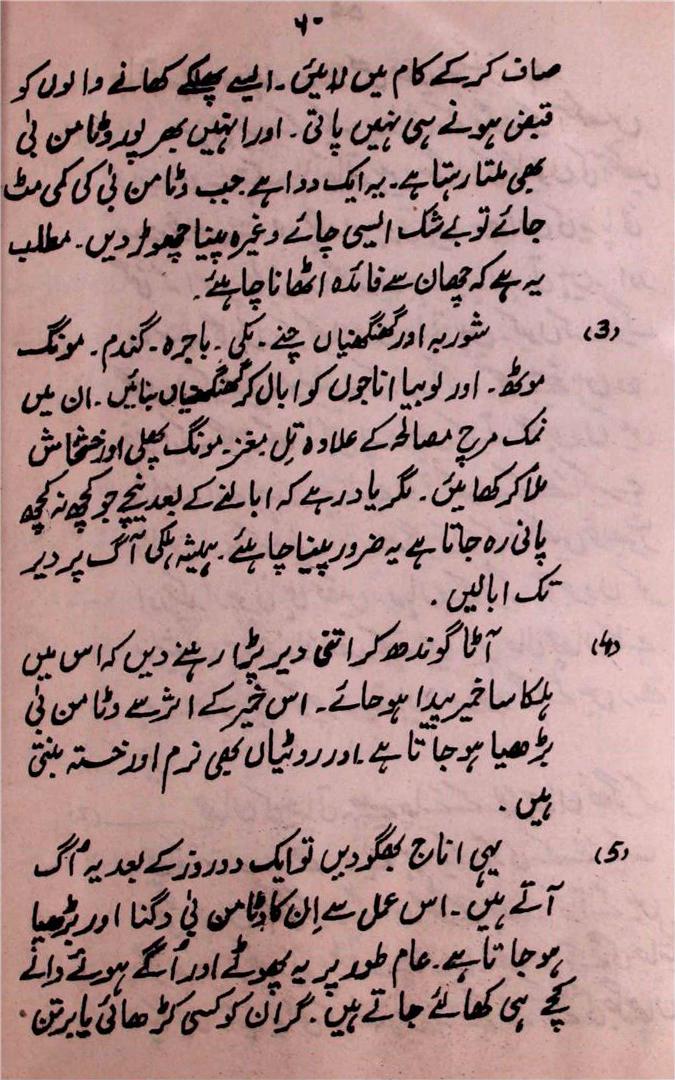 ۶۰
صاف کر کے کام میں لائیں۔ ایسے پھلکے کھانے والوں کو
قبض ہونے ہی نہیں پاتی۔ اور انہیں بھر پور وٹامن بی
بھی ملتا رہتا ہے۔ یہ ایک دوا ہے جب وٹامن بی کی کمی مٹ
جائے تو بے شک ایسی چائے وغیرہ پینا چھوڑ دیں۔ مطلب
یہ ہے کہ چھان سے فائدہ اٹھانا چاہئے۔
(3) شوربہ اور گھنگھنیاں چنے۔ مکی۔ باجرہ۔ گندم۔ مونگ
موٹھ۔ اور لوبیا اناجوں کو ابال کر گھنگھنیاں بنائیں۔ ان میں
نمک مرچ مصالحہ کے علاوہ تل مغز۔ مونگ پھلی اور خشخاش
ملا کر کھائیں۔ مگر یاد رہے کہ ابالنے کے بعد نیچے جو کچھ نہ کچھ
پانی رہ جاتا ہے یہ ضرور پینا چاہئے۔ ہمیشہ ہلکی آگ پر دیر
تک ابالیں۔
(4) آٹا گوندھ کر اتنی دیر پڑا رہنے دیں کہ اس میں
ہلکا سا خمیر پیدا ہو جائے۔ اس خمیر کے اثر سے وٹامن بی
بڑھیا ہو جاتا ہے۔ اور روٹیاں بھی نرم اور خستہ بنتی
ہیں۔
(5) یہی اناج بھگو دیں تو ایک دو روز کے بعد یہ اُگ
آتے ہیں۔ اس عمل سے اِن کا وٹامن بی دگنا اور بڑھیا
ہو جاتا ہے۔ عام طور پر یہ پھوٹے اور اُگے ہوئے دانے
کچے ہی کھائے جاتے ہیں۔ گر ان کو کسی کڑھائی یا برتن